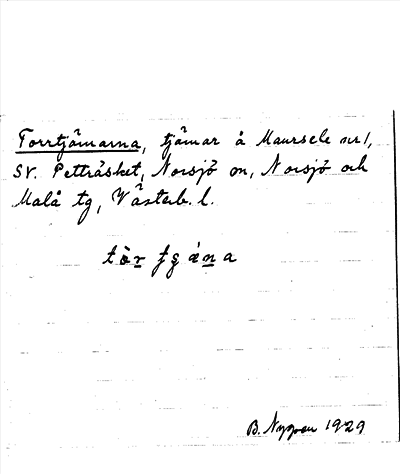 Torrtjärnarna, tjärnar å Maursele nr 1,
SV. Petträsket, Norsjö sn, Norsjö och
Malå tg, Västerb. l.
B. Nygren 1929